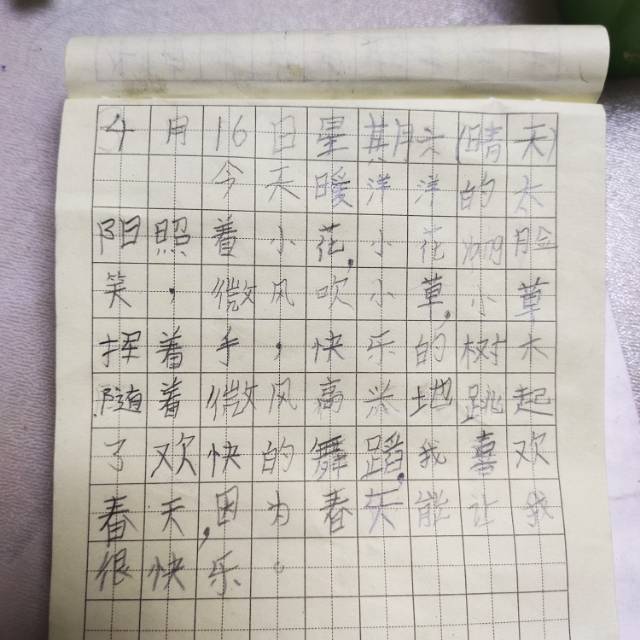 4月16日星期六(晴天)
今天暖洋洋的太
阳照着小花,小花咧脸
笑,微风吹小草,小草
挥着手,快乐的树木
随着微风高兴地跳起
了欢快的舞蹈,我喜欢
春天,因为春天能让我
很快乐。